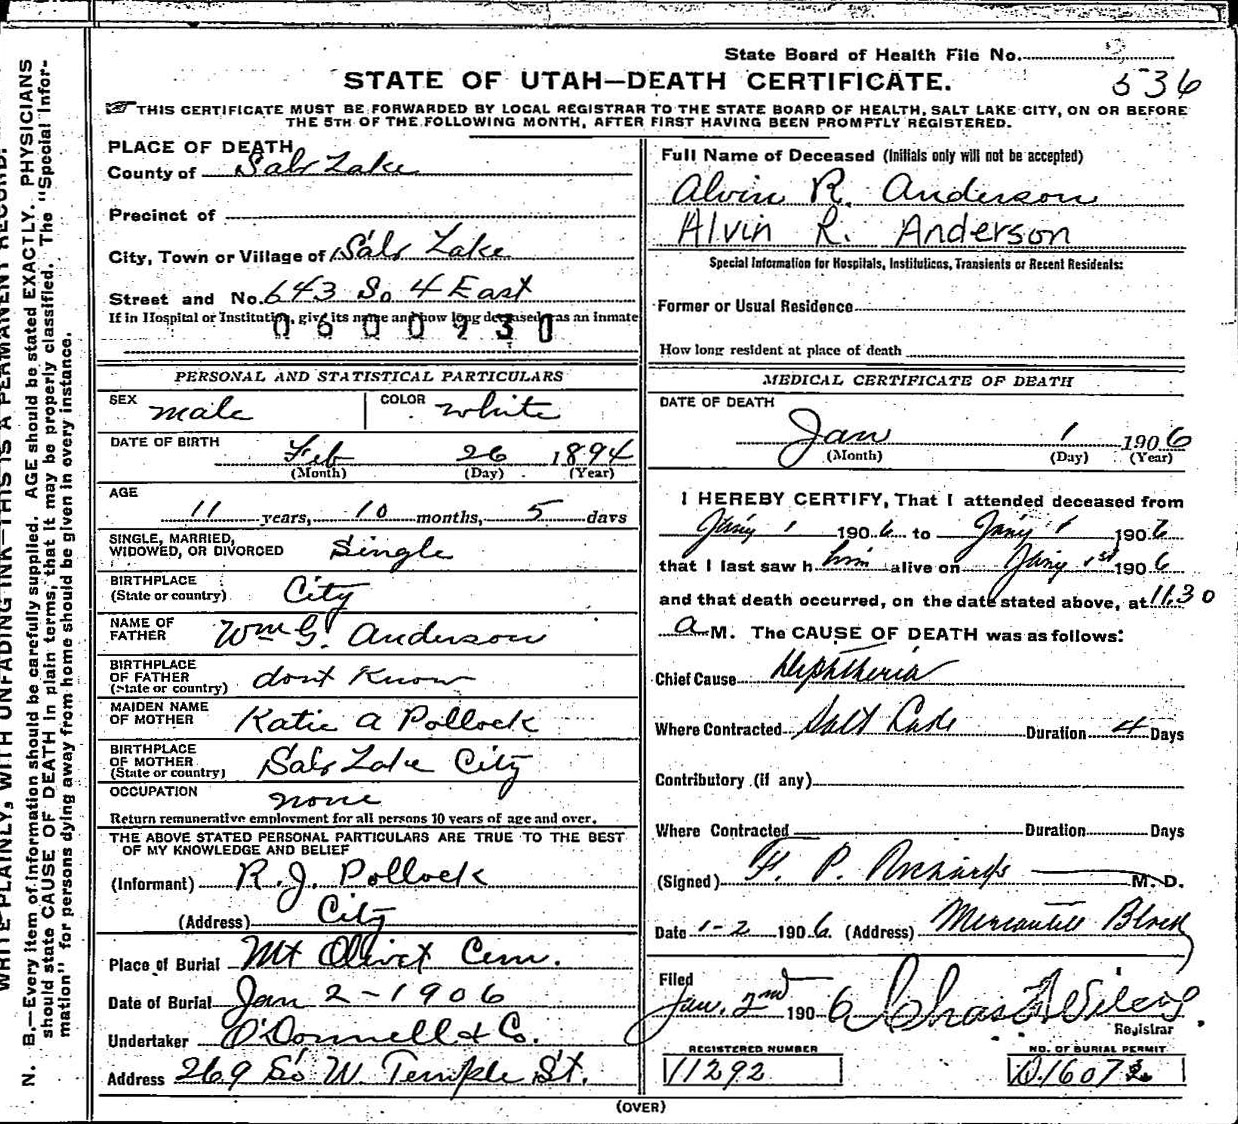 State Board of Health File No.
536
STATE OF UTAH—DEATH CERTIFICATE.
THIS CERTIFICATE MUST BE FORWARDED BY LOCAL REGISTRAR TO THE STATE BOARD OF HEALTH, SALT LAKE CITY, ON OR BEFORE
THE 5TH OF THE FOLLOWING MONTH, AFTER FIRST HAVING BEEN PROMPTLY REGISTERED.
PLACE OF DEATH
County of Salt Lake
Precinct of
City, Town or Village of Salt Lake
Street and No. 643 So 4 East
If in Hospital or Institution, give its name and how long deceased was an inmate
0600930
PERSONAL AND STATISTICAL PARTICULARS
SEX male COLOR white
DATE OF BIRTH
Feb 26 1894
(Month) (Day) (Year)
AGE
11 years, 10 months, 5 days
SINGLE, MARRIED,
WIDOWED, OR DIVORCED Single
BIRTHPLACE
(State or country) City
NAME OF
FATHER Wm G. Anderson
BIRTHPLACE
OF FATHER
(State or country) dont Know
MAIDEN NAME
OF MOTHER Katie a Pollock
BIRTHPLACE
OF MOTHER
(State or country) Salt Lake City
OCCUPATION none
Return remunerative employment for all persons 10 years of age and over.
THE ABOVE STATED PERSONAL PARTICULARS ARE TRUE TO THE BEST
OF MY KNOWLEDGE AND BELIEF
(Informant) R. J. Pollock
(Address) City
Place of Burial Mt Olivet Cem.
Date of Burial Jan 2 - 1906
Undertaker O'Donnell & Co.
Address 269 So W. Temple St.
Full Name of Deceased (Initials only will not be accepted)
Alvin R. Anderson
Alvin R. Anderson
Special Information for Hospitals, Institutions, Transients or Recent Residents:
Former or Usual Residence
How long resident at place of death
MEDICAL CERTIFICATE OF DEATH
DATE OF DEATH
Jan 1 1906
(Month) (Day) (Year)
I HEREBY CERTIFY, That I attended deceased from
Jany 1 1906 to Jany 1 1906
that I last saw him alive on Jany 1st 1906
and that death occurred, on the date stated above, at 11.30
a M. The CAUSE OF DEATH was as follows:
Chief Cause Diphtheria
Where Contracted Salt Lake Duration 4 Days
Contributory (if any)
Where Contracted Duration Days
(Signed) F. P. M. D.
Date 1-2 1906. (Address) Mercantile Block
Filed
Jan. 2nd 1906 Chas
Registrar
REGISTERED NUMBER
11292
NO. OF BURIAL PERMIT
(OVER)
N. B.—Every item of information should be carefully supplied. AGE should be stated EXACTLY. PHYSICIANS
should state CAUSE OF DEATH in plain terms, that it may be properly classified. The "Special Infor-
mation" for persons dying away from home should be given in every instance.
WRITE PLAINLY, WITH UNFADING INK—THIS IS A PERMANENT RECORD.